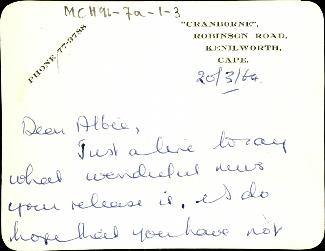 MCH91-7a-1-3
PHONE 77-3788
"CRANBORNE",
ROBINSON ROAD,
KENILWORTH,
CAPE.
20/3/64
Dear Albie,
Just a line to say
what wonderful news
your release is, & I do
hope that you have not